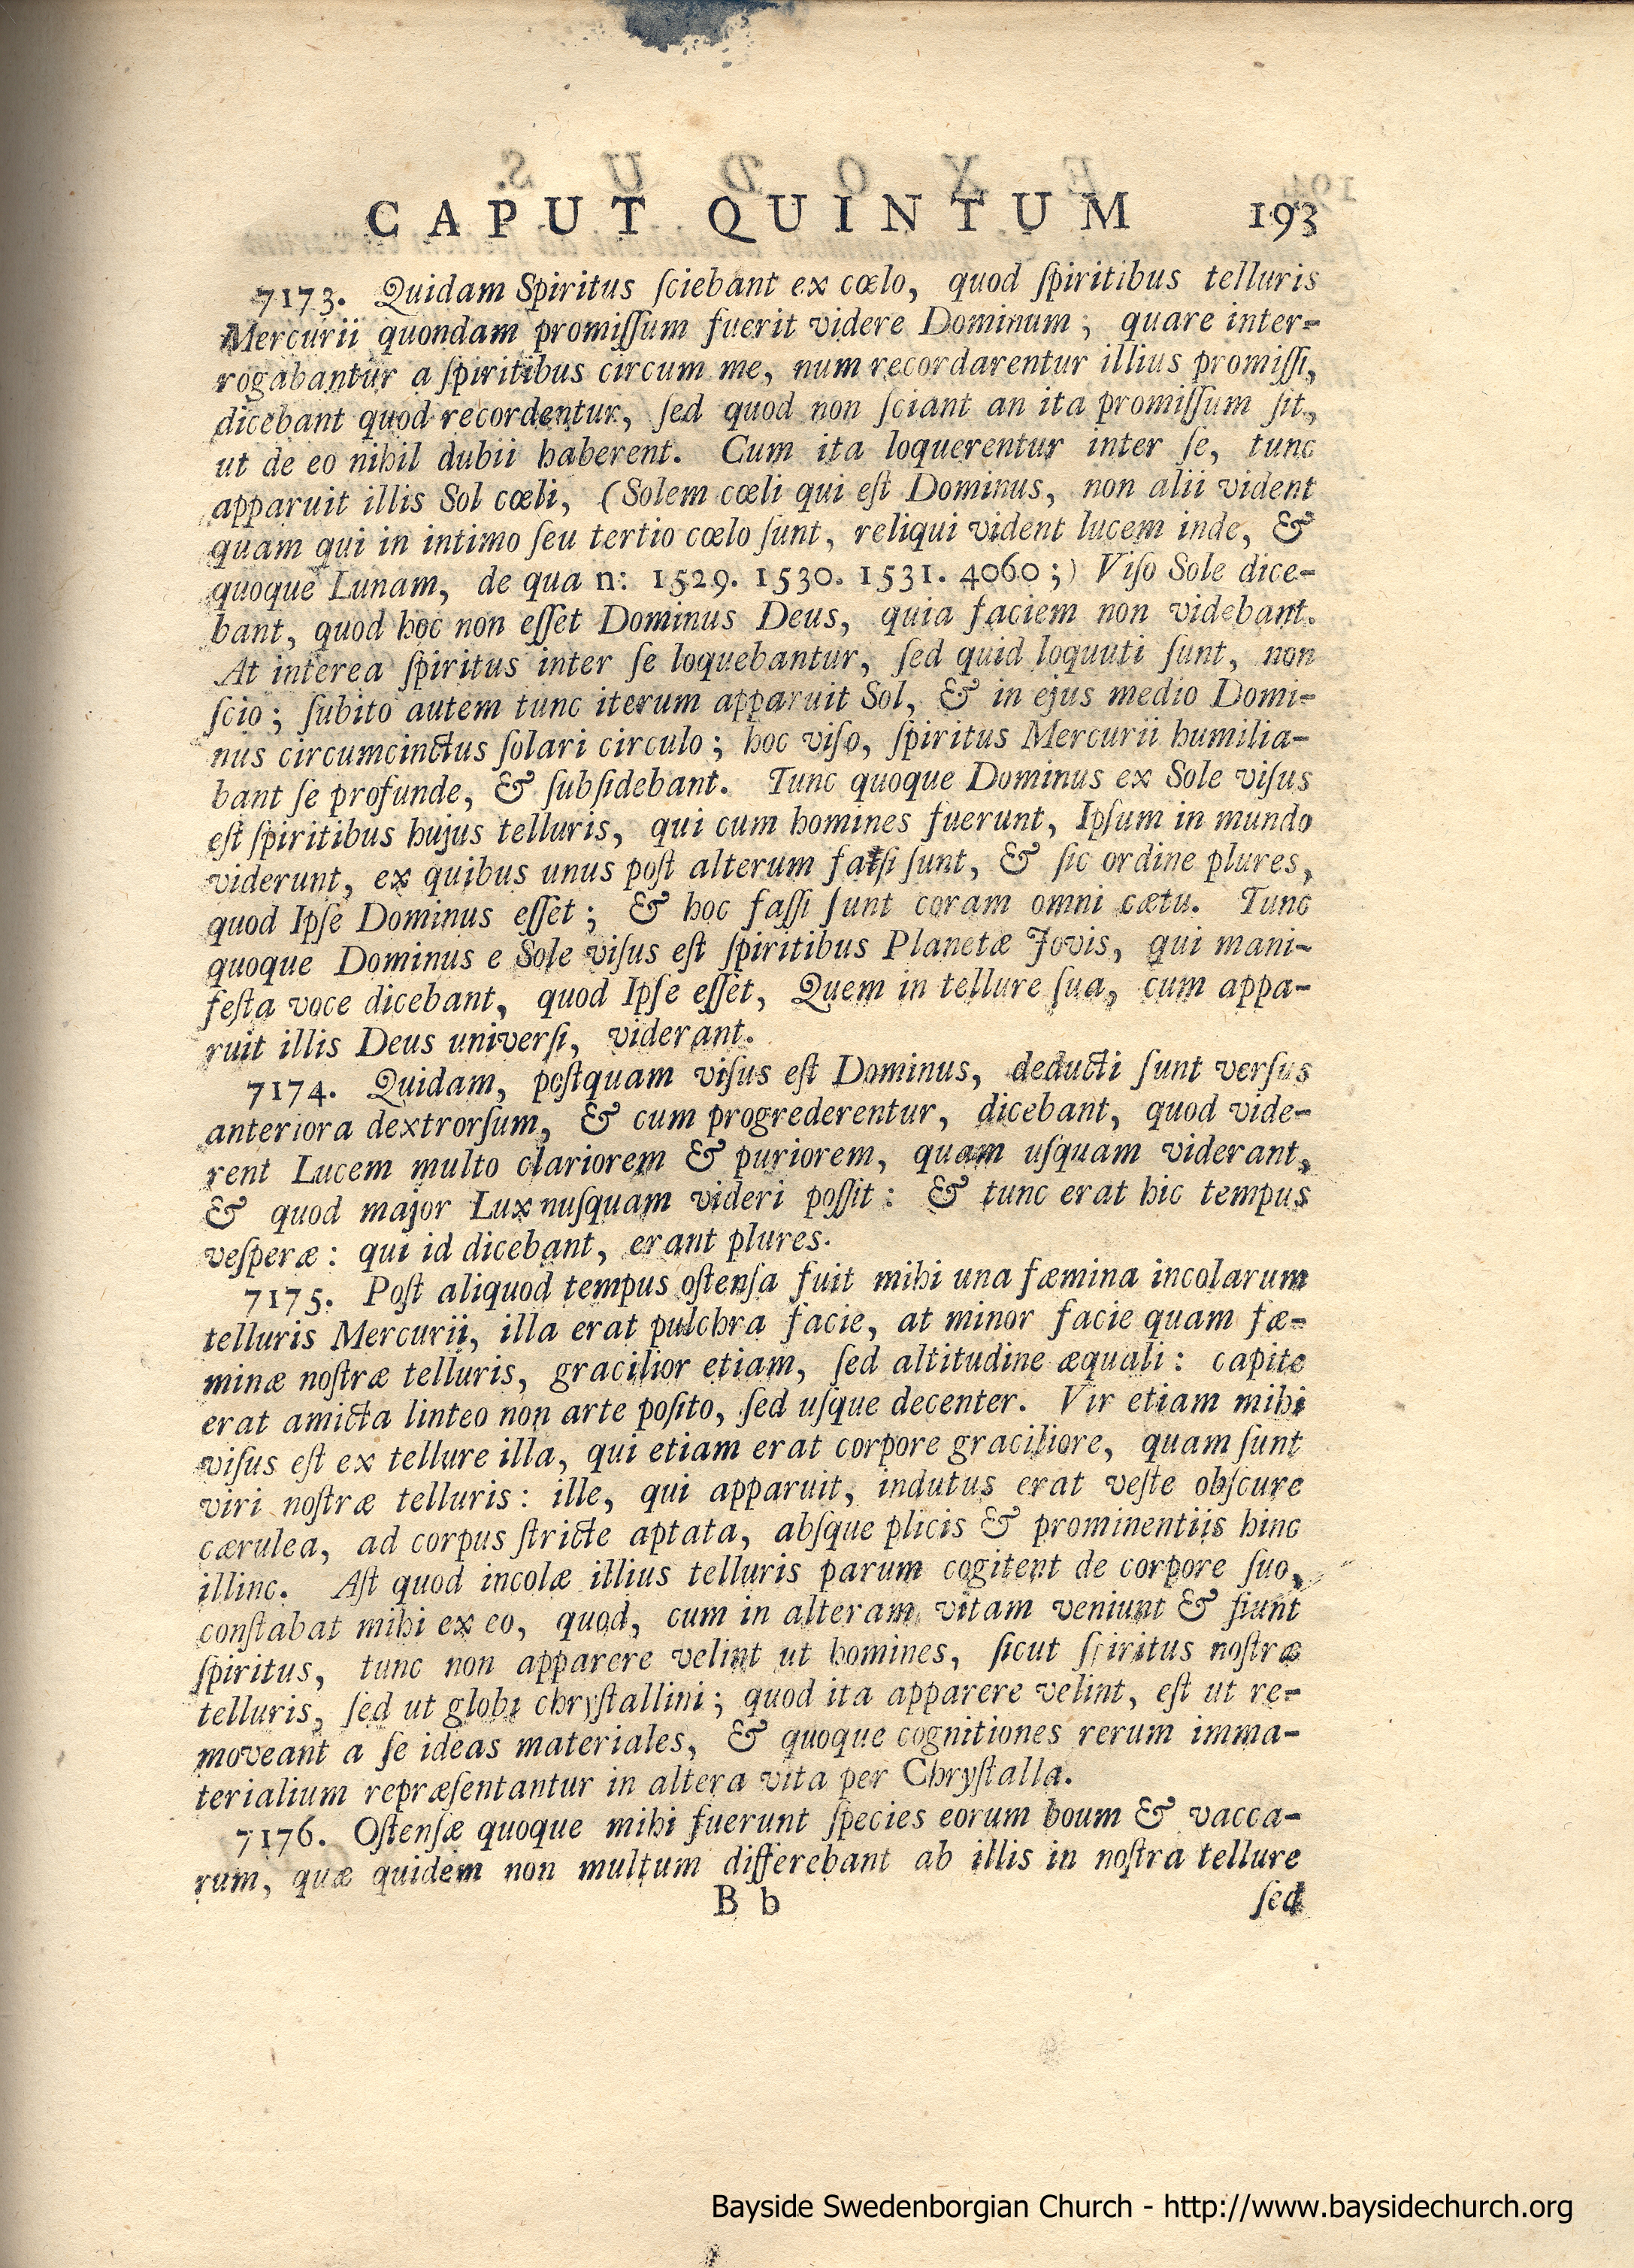 CAPUT QUINTUM 193
7173. Quidam Spiritus ſciebant ex cœlo, quod ſpiritibus telluris
Mercurii quondam promiſſum fuerit videre Dominum; quare inter-
rogabantur a ſpiritibus circum me, num recordarentur illius promiſſi,
dicebant quod recordentur, ſed quod non ſciant an ita promiſſum ſit,
ut de eo nihil dubii haberent. Cum ita loquerentur inter ſe, tunc
apparuit illis Sol cœli, (Solem cœli qui eſt Dominus, non alii vident
quam qui in intimo ſeu tertio cœlo ſunt, reliqui vident lucem inde, &
quoque Lunam, de qua n: 1529. 1530. 1531. 4060;) Viſo Sole dice-
bant, quod hoc non eſſet Dominus Deus, quia faciem non videbant.
At interea ſpiritus inter ſe loquebantur, ſed quid loquuti ſunt, non
ſcio; ſubito autem tunc iterum apparuit Sol, & in ejus medio Domi-
nus circumcinctus ſolari circulo; hoc viſo, ſpiritus Mercurii humilia-
bant ſe profunde, & ſubſidebant. Tunc quoque Dominus ex Sole viſus
eſt ſpiritibus hujus telluris, qui cum homines fuerunt, Ipſum in mundo
viderunt, ex quibus unus poſt alterum faſſi ſunt, & ſic ordine plures,
quod Ipſe Dominus eſſet; & hoc faſſi ſunt coram omni cætu. Tunc
quoque Dominus e Sole viſus eſt ſpiritibus Planetæ Jovis, qui mani-
feſta voce dicebant, quod Ipſe eſſet, Quem in tellure ſua, cum appa-
ruit illis Deus univerſi, viderant.
7174. Quidam, poſtquam viſus eſt Dominus, deducti ſunt verſus
anteriora dextrorſum, & cum progrederentur, dicebant, quod vide-
rent Lucem multo clariorem & puriorem, quam uſquam viderant,
& quod major Lux nuſquam videri poſſit: & tunc erat hic tempus
veſperæ: qui id dicebant, erant plures.
7175. Poſt aliquod tempus oſtenſa fuit mihi una fæmina incolarum
telluris Mercurii, illa erat pulchra facie, at minor facie quam fæ-
minæ noſtræ telluris, gracilior etiam, ſed altitudine æquali: capite
erat amicta linteo non arte poſito, ſed uſque decenter. Vir etiam mihi
viſus eſt ex tellure illa, qui etiam erat corpore graciliore, quam ſunt
viri noſtræ telluris: ille, qui apparuit, indutus erat veſte obſcure
cærulea, ad corpus ſtricte aptata, abſque plicis & prominentiis hinc
illinc. Aſt quod incolæ illius telluris parum cogitent de corpore ſuo,
conſtabat mihi ex eo, quod, cum in alteram vitam veniunt & fiunt
ſpiritus, tunc non apparere velint ut homines, ſicut ſpiritus noſtræ
telluris, ſed ut globi chryſtallini; quod ita apparere velint, eſt ut re-
moveant a ſe ideas materiales, & quoque cognitiones rerum imma-
terialium repræſentantur in altera vita per Chryſtalla.
7176. Oſtenſæ quoque mihi fuerunt ſpecies eorum boum & vacca-
rum, quæ quidem non multum differebant ab illis in noſtra tellure
B b ſed
Bayside Swedenborgian Church - http://www.baysidechurch.org